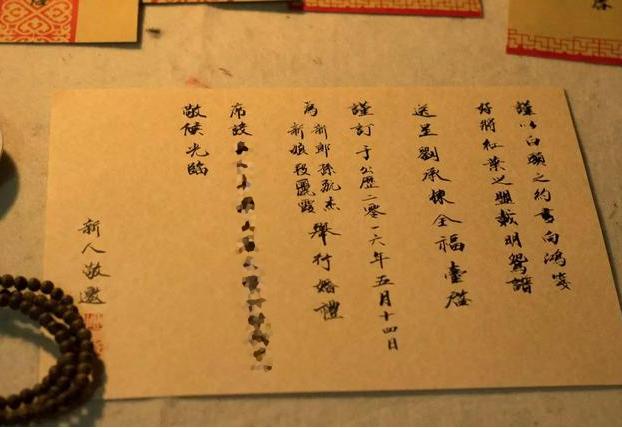 謹以白頭之約書向鴻箋
好將紅葉之盟載明鴛譜
送呈劉承悚全福臺啓
謹訂于公歷二零一六年五月十四日
為 新郎孫 杰 新娘段麗霞 舉行婚禮
席設
敬候光臨
新人敬邀